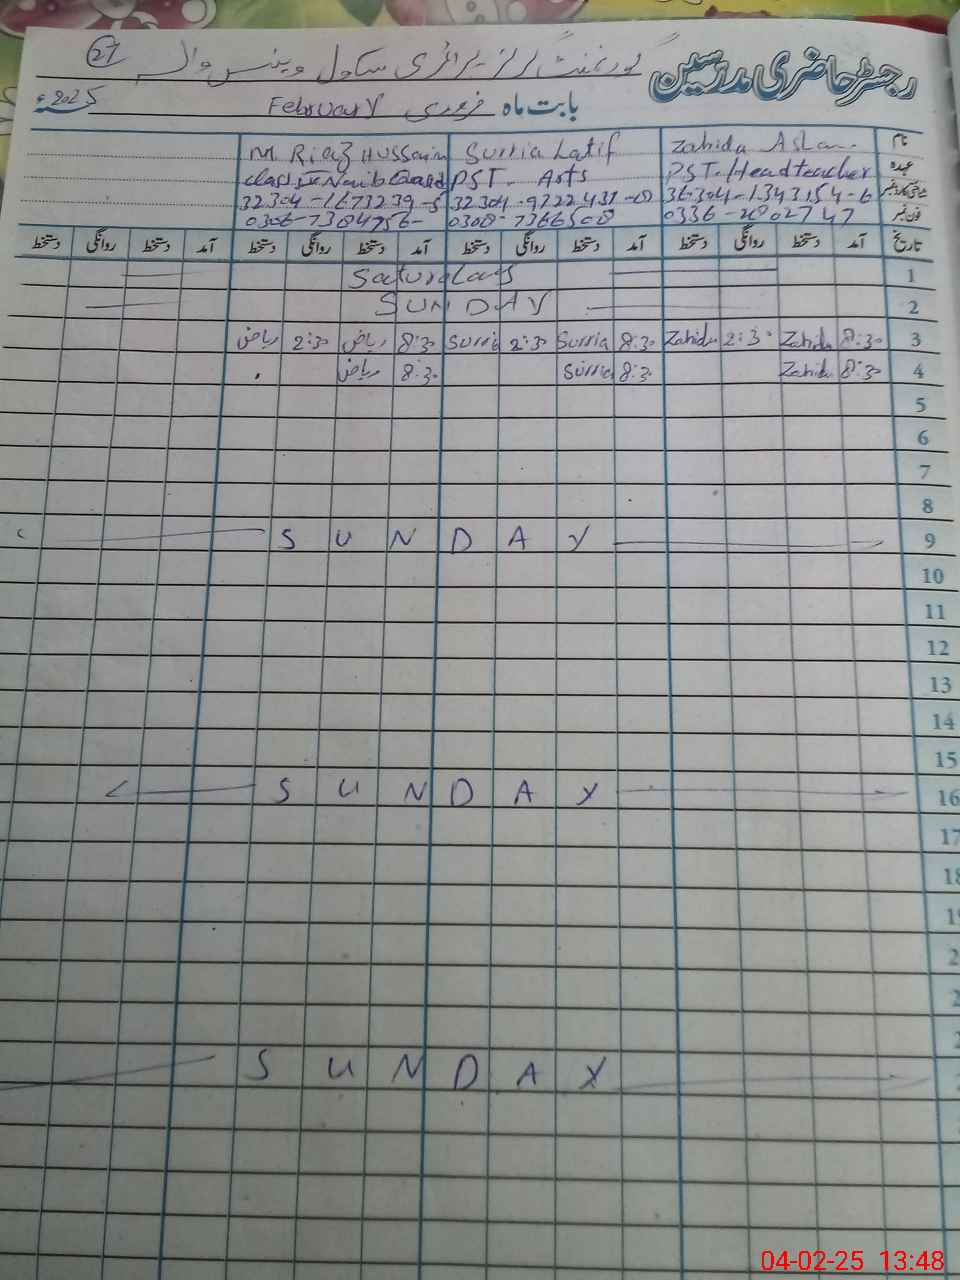 27 گورنمنٹ گرلز پرائمری سکول وینس والہ
رجسٹر حاضری مدرسین
بابت ماہ فروری February 2025ء
نام Zahida Aslam Surria Latif M. Riaz Hussain
عہدہ PST. Headteacher PST. Arts Class IV Naib Qasid
شناختی کارڈ نمبر 32304-9722431- 32304-1673239-5
فون نمبر 0336-2802747 0308-7366508 0306-7384756-
تاریخ آمد دستخط روانگی دستخط آمد دستخط روانگی دستخط آمد دستخط روانگی دستخط آمد دستخط روانگی دستخط
1 Saturday
2 SUNDAY
3 8:30 Zahida 2:30 Zahida 8:30 Surria 2:30 Surria 8:30 ریاض 2:30 ریاض
4 8:30 Zahida 8:30 Surria 8:30 ریاض
5
6
7
8
9 SUNDAY
10
11
12
13
14
15
16 SUNDAY
17
18
19
SUNDAY
04-02-25 13:48